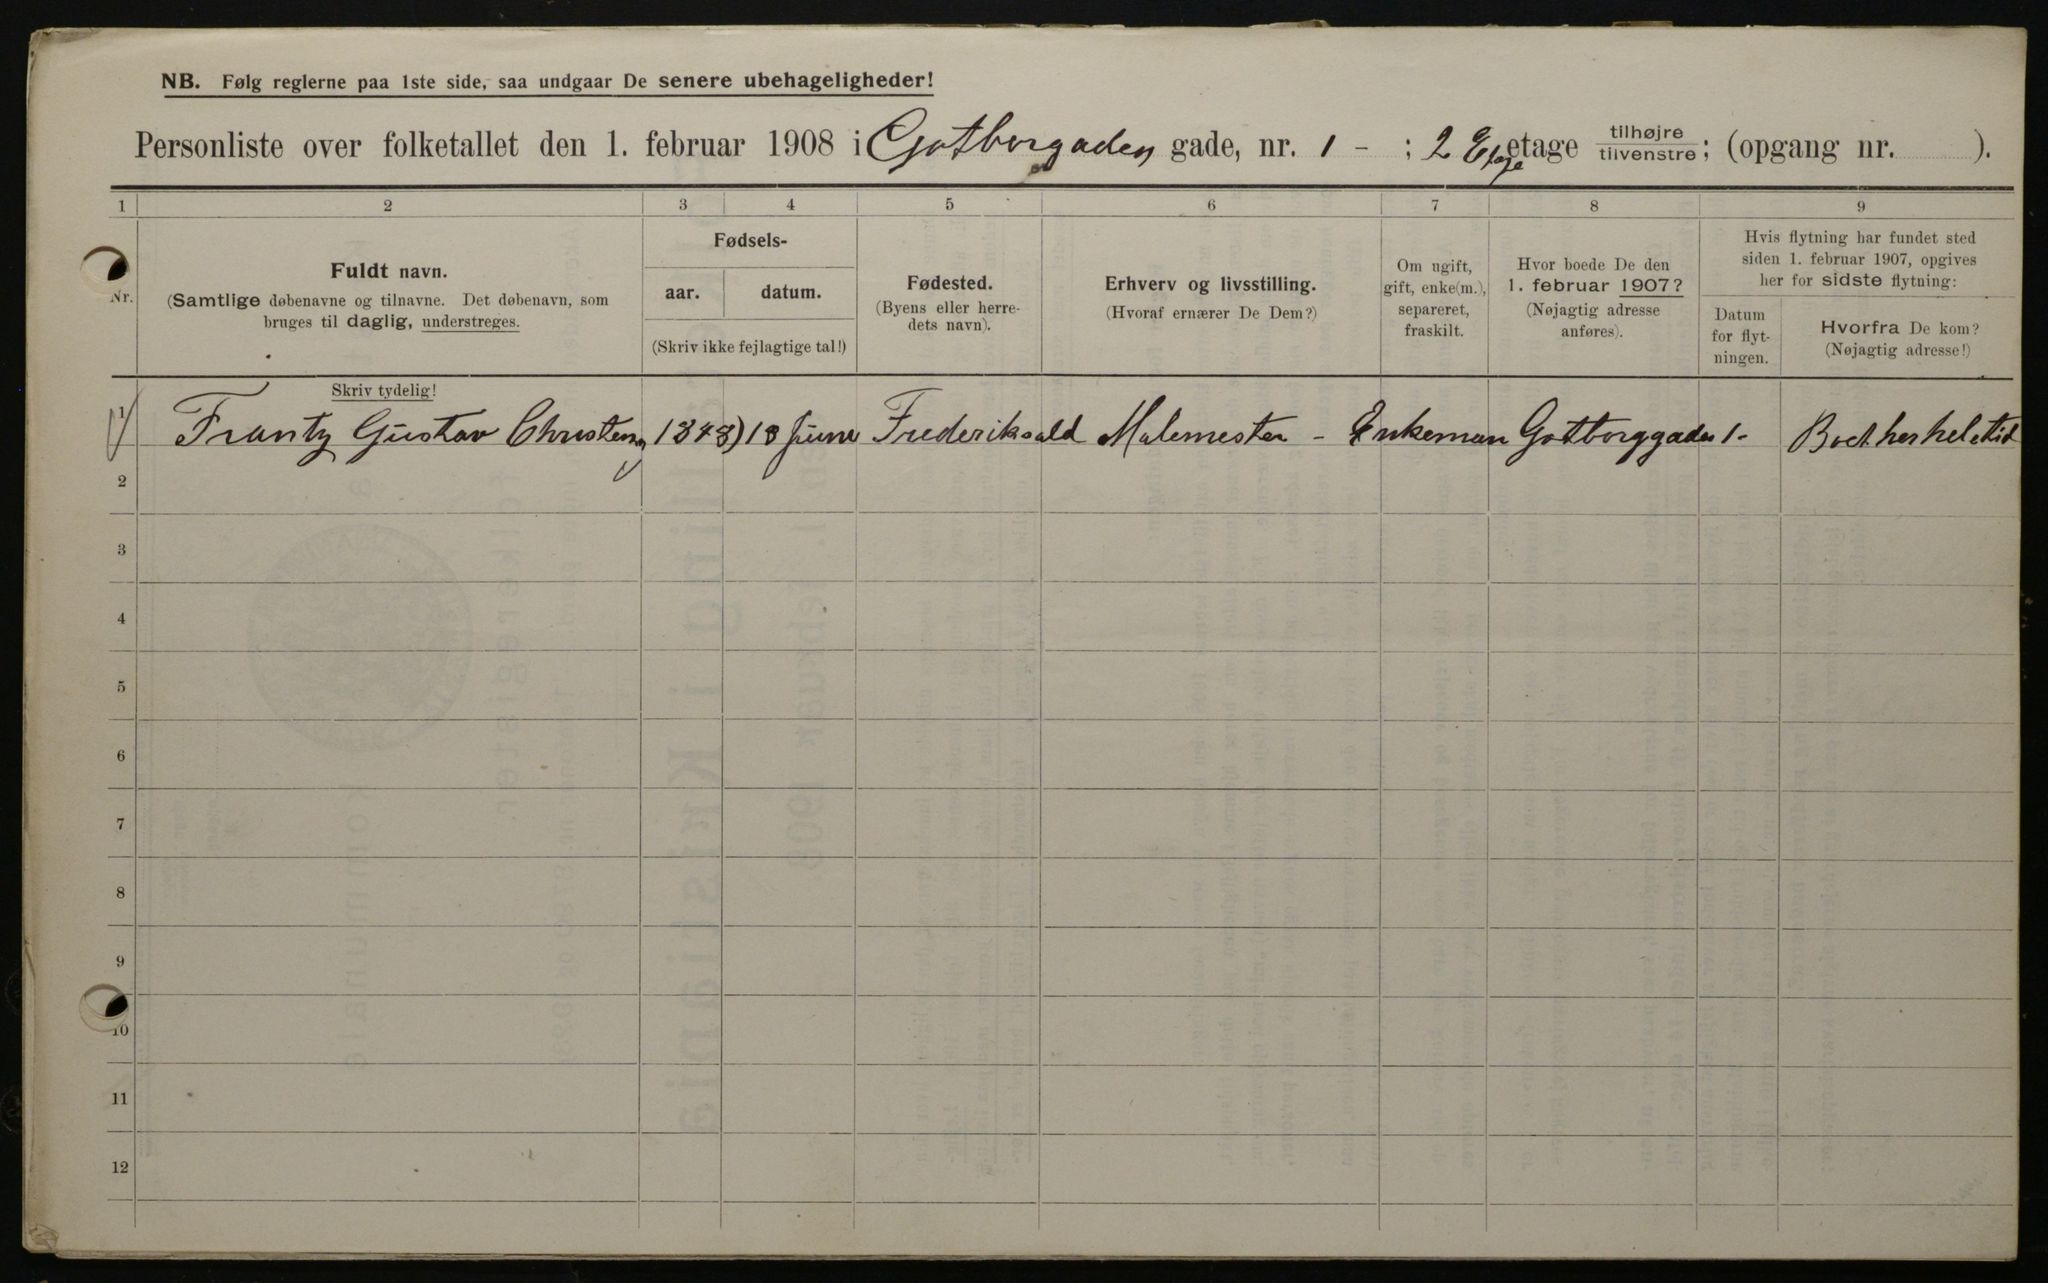 NB. Følg reglerne paa 1ste side, saa undgaar De senere ubehageligheder!
Personliste over folketallet den 1. februar 1908 i Gotborgaden gade, nr. 1 - ; 2 Etage etage tilhøjre tilvenstre; (opgang nr. ).
1 2 3 4 5 6 7 8 9
Nr.
Fuldt navn.
(Samtlige døbenavne og tilnavne. Det døbenavn, som
bruges til daglig, understreges.
Skriv tydelig!
Fødsels-
aar. datum.
(Skriv ikke fejlagtige tal!)
Fødested.
(Byens eller herre-
dets navn).
Erhverv og livsstilling.
(Hvoraf ernærer De Dem?)
Om ugift,
gift, enke(m.),
separeret,
fraskilt.
Hvor boede De den
1. februar 1907?
(Nøjagtig adresse
anføres).
Hvis flytning har fundet sted
siden 1. februar 1907, opgives
her for sidste flytning:
Datum
for flyt-
ningen.
Hvorfra De kom?
(Nøjagtig adresse!)
1 Frantz Gustav Christensen 1848) 18 June Frederiksald Malemester - Enkeman Gotborggaden 1 - Boet her hele tid
2
3
4
5
6
7
8
9
10
11
12